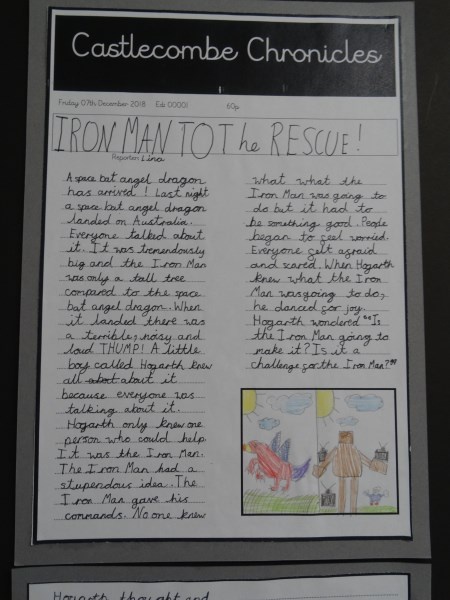 Castlecombe Chronicles
Friday 07th December 2018 Edi 00001 60p
IRON MAN TO The RESCUE!
Reporter: Lina
A space bat angel dragon
has arrived! Last night
a space bat angel dragon
landed on Australia.
Everyone talked about
it. It was tremendously
big and the Iron Man
was only a tall tree
compared to the space
bat angel dragon. When
it landed there was
a terrible, noisy and
loud THUMP! A little
boy called Hogarth knew
all about about it
because everyone was
talking about it.
Hogarth only knew one
person who could help
It was the Iron Man.
The Iron Man had a
stupendous idea. The
Iron Man gave his
commands. No one knew
what what the
Iron Man was going to
do but it had to
be something good. People
began to feel worried.
Everyone felt afraid
and scared. When Hogarth
knew what the Iron
Man was going to do,
he danced for joy.
Hogarth wondered "Is
the Iron Man going to
make it? Is it a
challenge for the Iron Man?"
Hogarth thought and